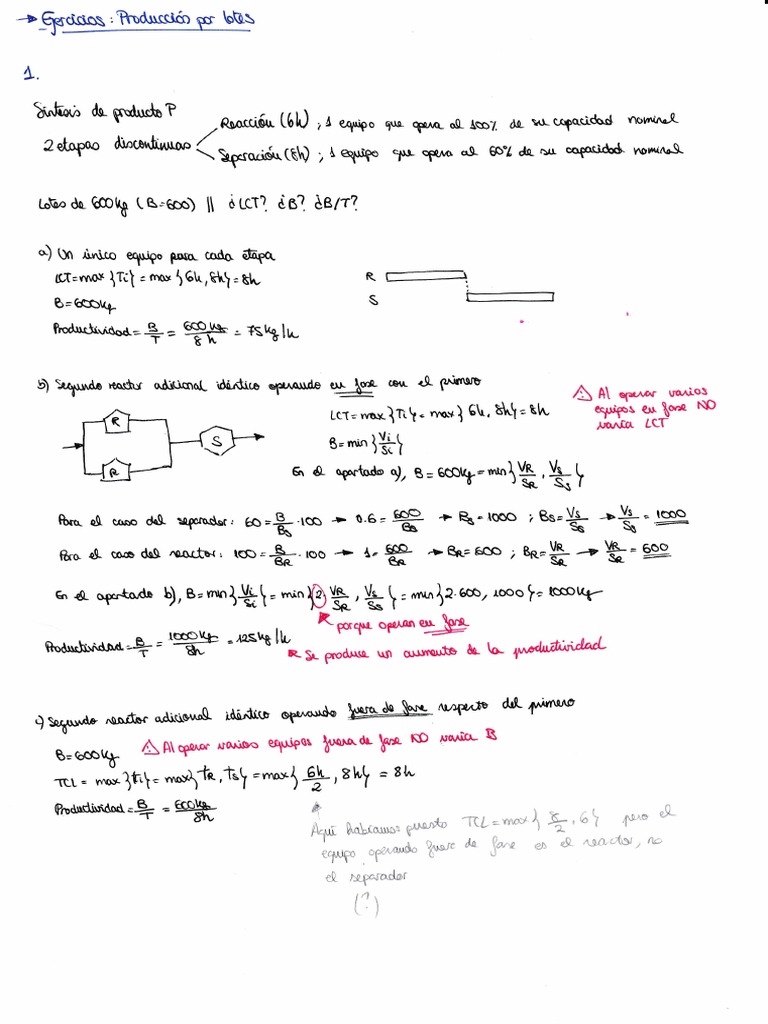 → Ejercicios: Producción por lotes
1.
Síntesis de producto P
2 etapas discontinuas
Reacción (6h) ; 1 equipo que opera al 100% de su capacidad nominal
Separación (8h) ; 1 equipo que opera al 60% de su capacidad nominal
Lotes de 600kg (B=600) || ¿LCT? ¿B? ¿B/T?
a) Un único equipo para cada etapa
LCT=max{Ti}=max{6h,8h}=8h
B=600kg
Productividad= B/T = 600kg/8h = 75kg/h
R
S
b) Segundo reactor adicional idéntico operando en fase con el primero
⚠ Al operar varios
equipos en fase NO
varía LCT
R
R
S
LCT=max{Ti}=max{6h,8h}=8h
B=min{Vi/Si}
En el apartado a), B=600kg=min{VR/SR, Vs/Ss}
Para el caso del separador: 60=B/Bs·100 → 0.6=600/Bs → Bs=1000 ; Bs=Vs/Ss → Vs/Ss=1000
Para el caso del reactor: 100=B/BR·100 → 1=600/BR → BR=600 ; BR=VR/SR → VR/SR=600
En el apartado b), B=min{Vi/Si}=min{2·VR/SR, Vs/Ss}=min{2·600, 1000}=1000kg
porque operan en fase
Productividad=B/T=1000kg/8h=125kg/h
Se produce un aumento de la productividad
c) Segundo reactor adicional idéntico operando fuera de fase respecto del primero
B=600kg ⚠ Al operar varios equipos fuera de fase NO varía B
TCL = max{ti}=max{tR, ts}=max{6h/2, 8h} = 8h
Productividad=B/T=600kg/8h
Aquí habíamos puesto TCL=max{8/2, 6} pero el
equipo operando fuera de fase es el reactor, no
el separador
(?)